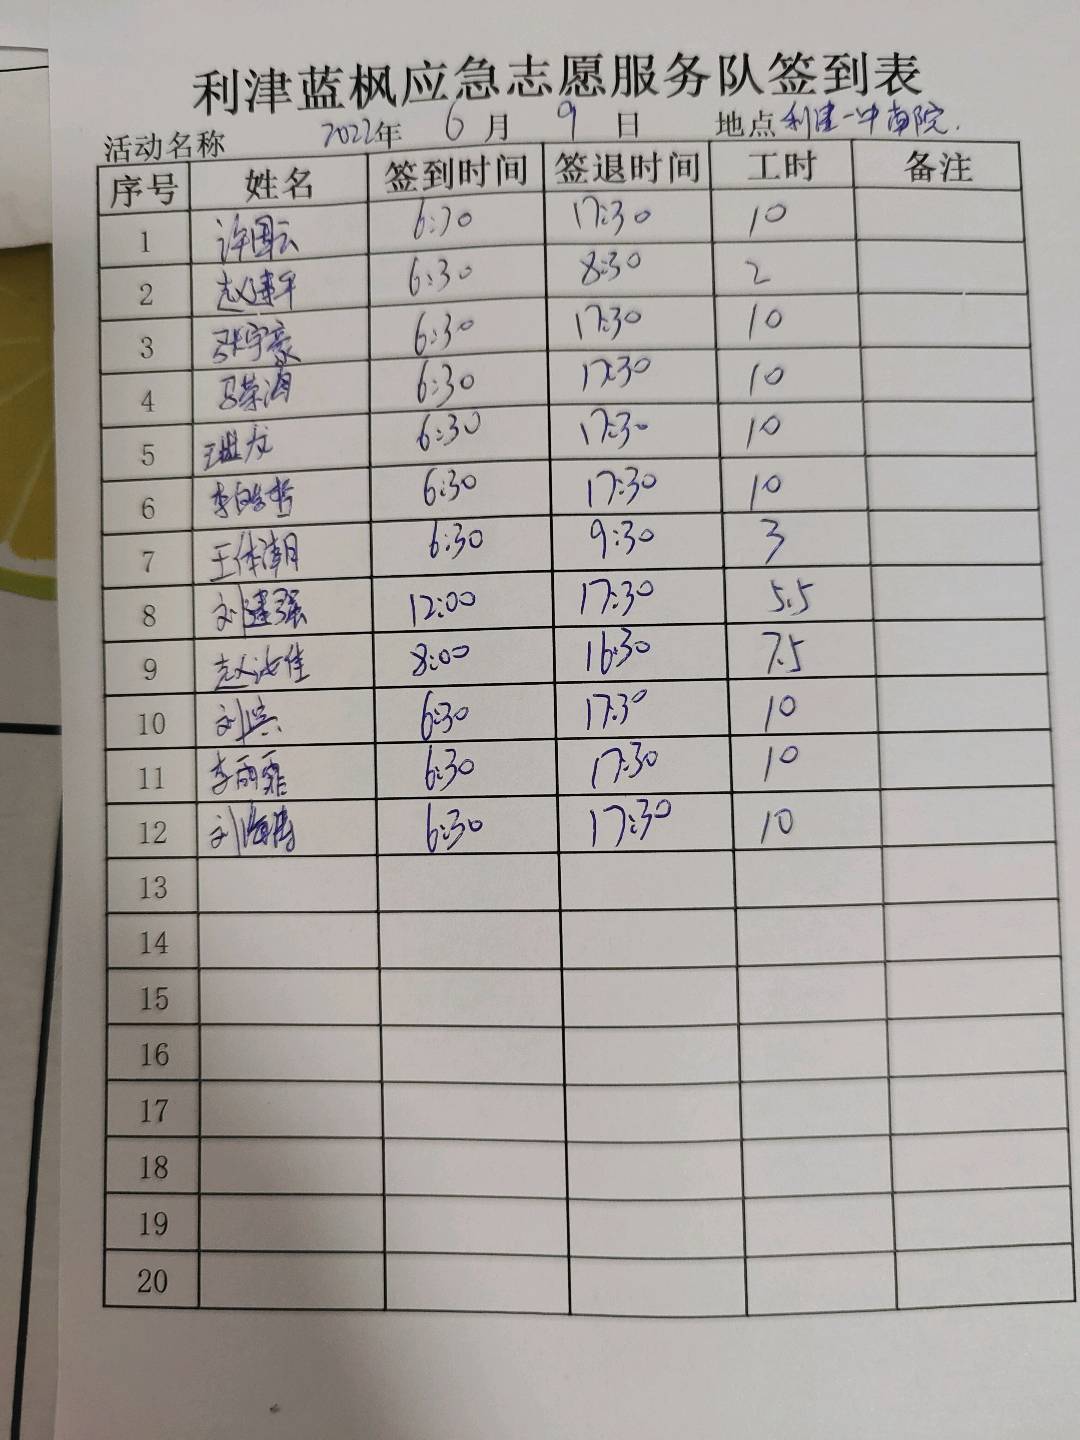 利津蓝枫应急志愿服务队签到表
活动名称 2022年 6 月 9 日 地点 利津一中南院.
序号 姓名 签到时间 签退时间 工时 备注
1 许国云 6:30 17:30 10
2 赵建军 6:30 8:30 2
3 张宇豪 6:30 17:30 10
4 马荣海 6:30 17:30 10
5 6:30 17:30 10
6 李皓哲 6:30 17:30 10
7 王伟 6:30 9:30 3
8 刘建强 12:00 17:30 5.5
9 赵汝佳 8:00 16:30 7.5
10 刘兴 6:30 17:30 10
11 李雨霏 6:30 17:30 10
12 刘海涛 6:30 17:30 10
13
14
15
16
17
18
19
20